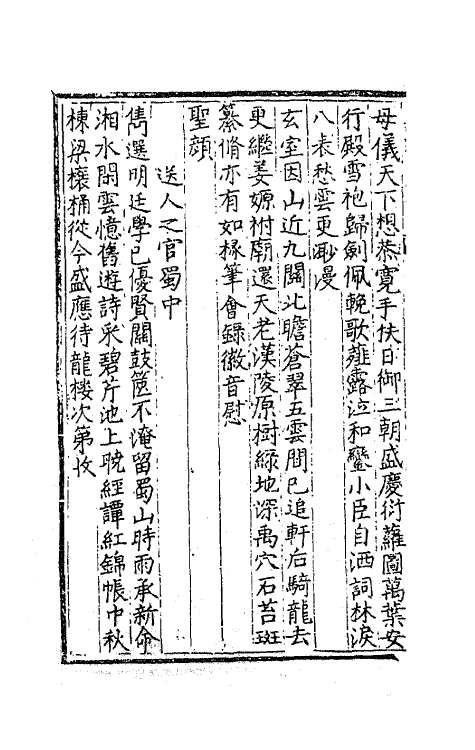 母儀天下想慈寬手伕日御三朝盛慶衍蘿圖萬葉安
行殿雪袍歸劍佩輓歌薤露泣和鑾小臣自洒詞林淚
八表愁雲更渺漫
玄室因山近九關北瞻蒼翠五雲間已追軒后騎龍去
更繼姜嫄祔廟還天老漢陵原樹綠地深禹穴石苔斑
纂脩亦有如椽筆會録徽音慰
聖顔
送人之官蜀中
雋選明廷學已優賢關鼓篋不淹留蜀山時雨承新命
湘水閑雲憶舊遊詩采碧芹池上晩經譚紅錦帳中秋
棟梁榱桷從今盛應待龍樓次第收